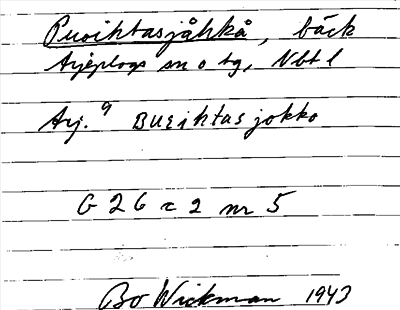 Puoihtasjåhkå, bäck
Arjeplogs sn o tg, Nbt l
Arj. 9 Bueihtasjokko
G 26 c 2 nr 5
Bo Wickman 1943